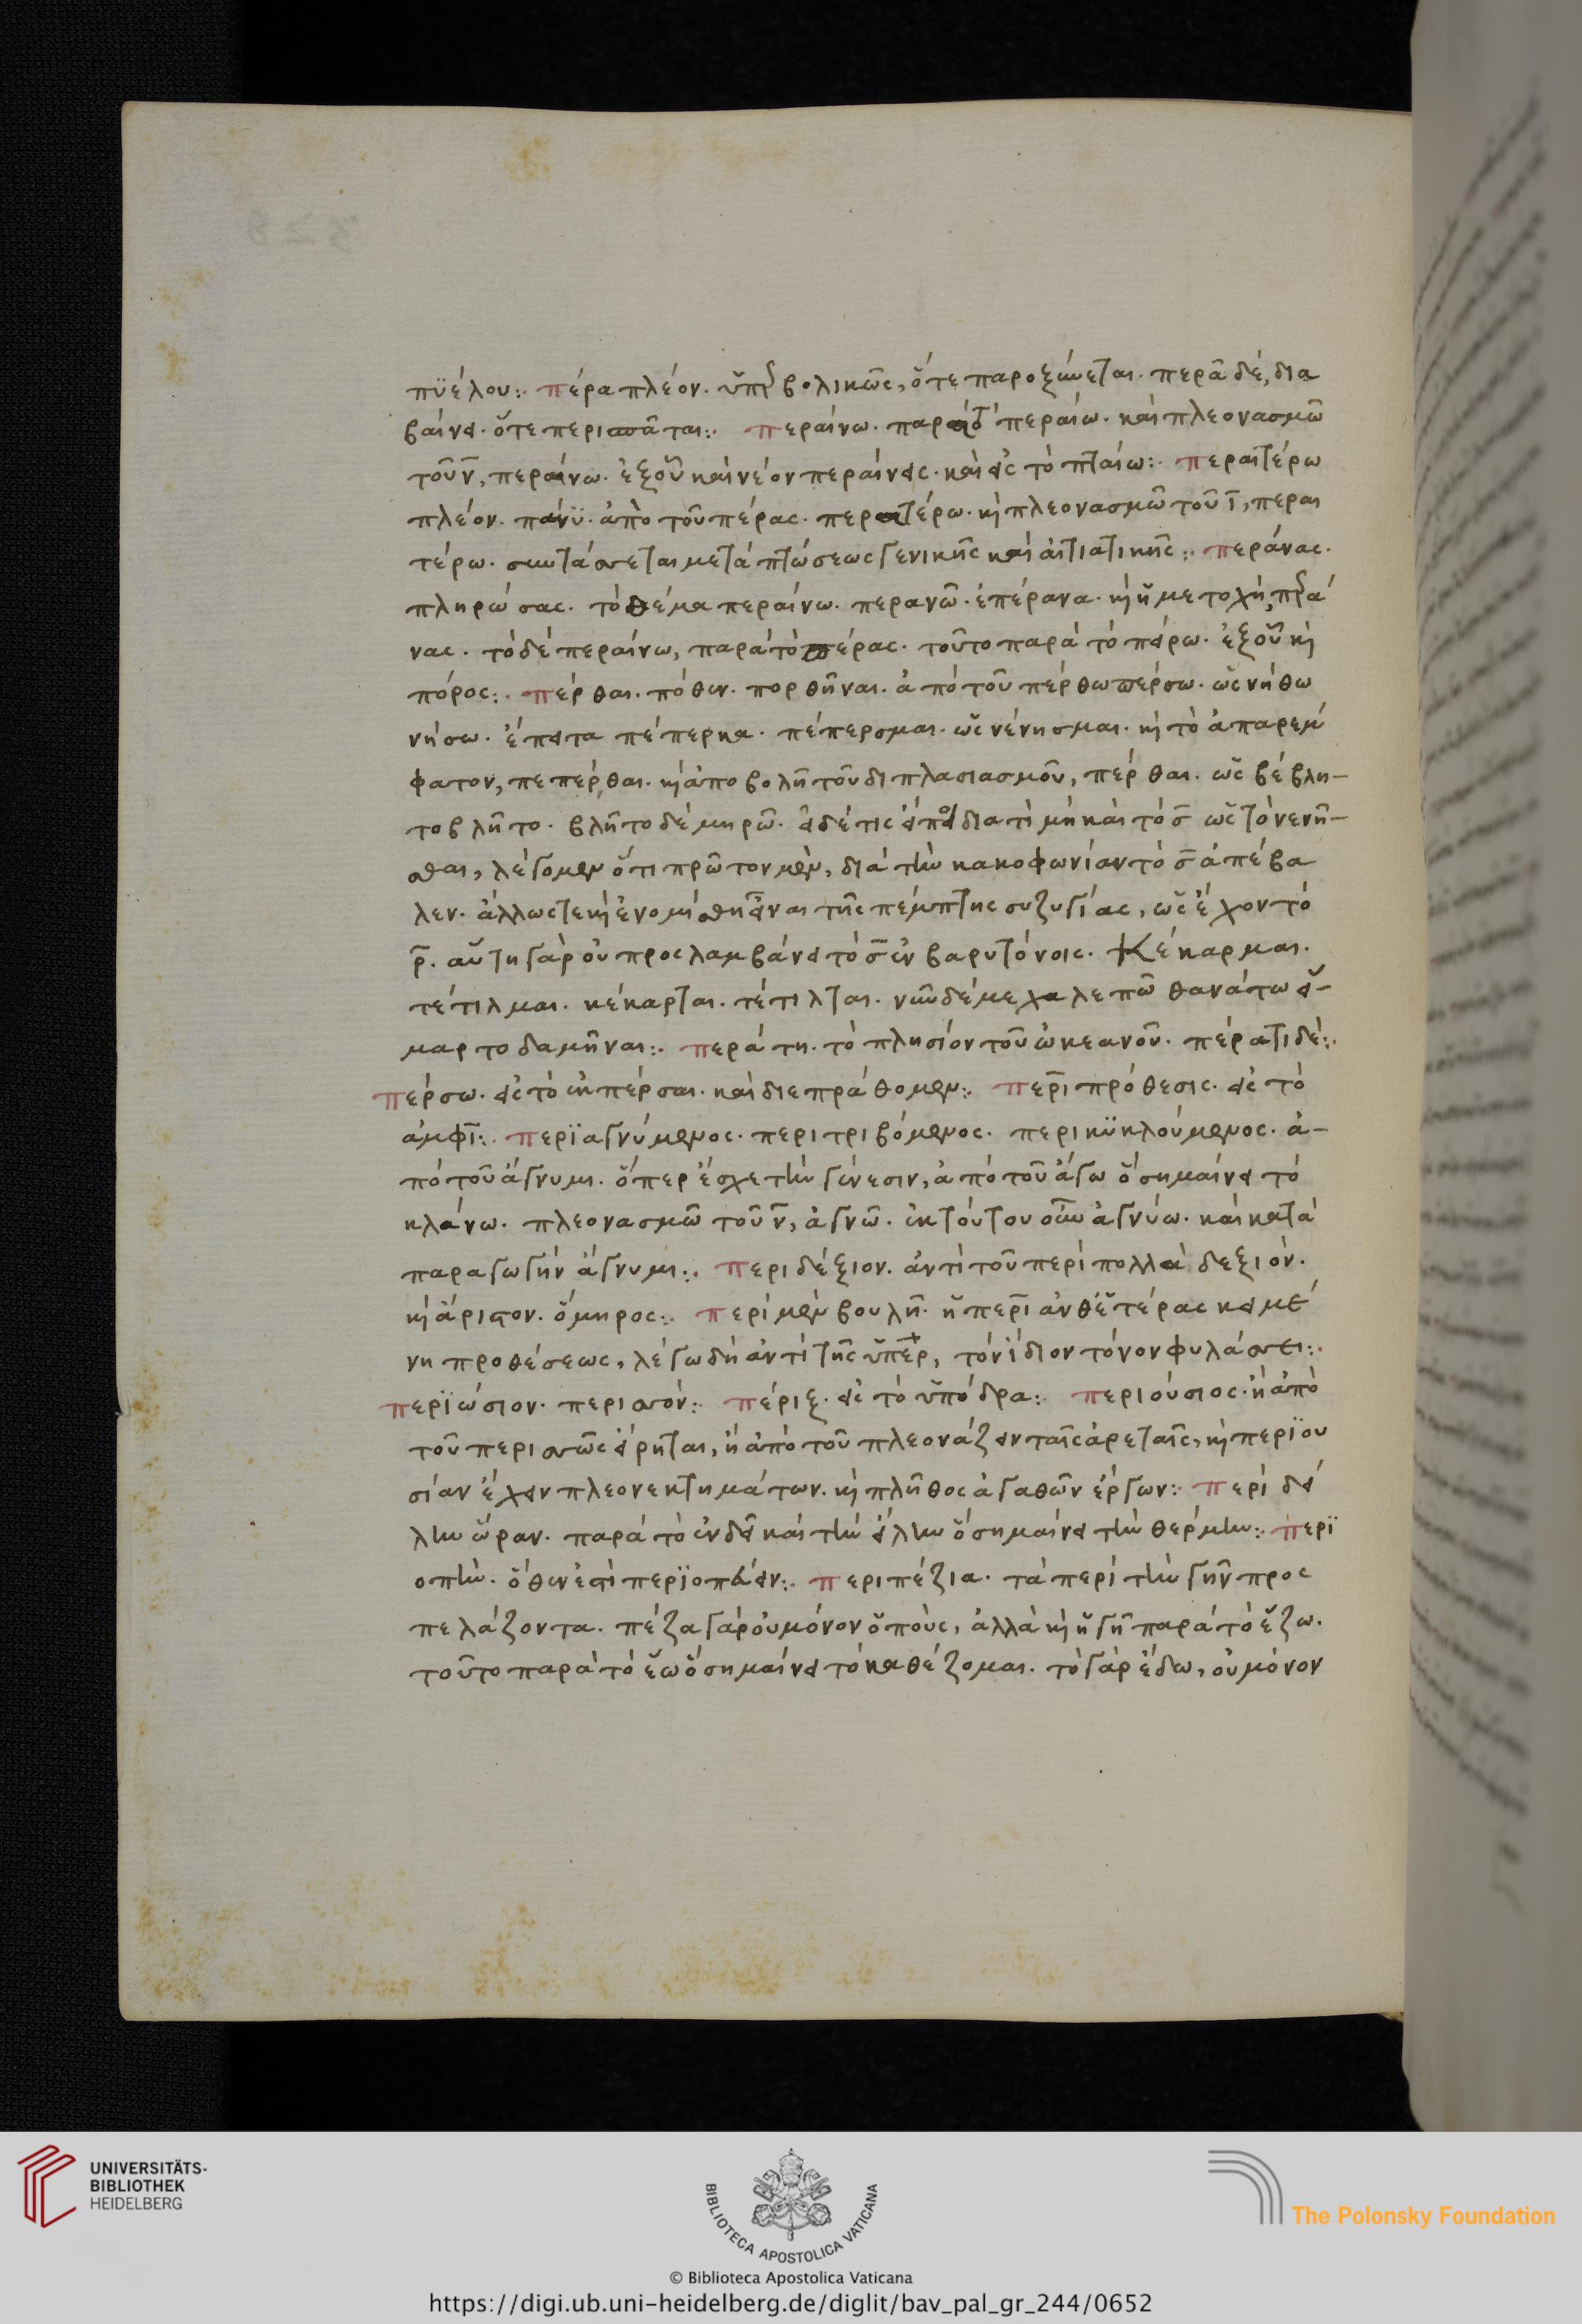 πϋέλου:. πέρα πλέον. ὑπερβολικῶς, ὅτε παροξύνεται. περᾶ δὲ, δια
βαίνει. ὅτε περισπᾶται:. περαίνω. παρὰ τὸ περαίω. καὶ πλεονασμῶ
τοῦ ν̄, περαίνω. ἐξοῦ καὶ νέον περαίνεις. καὶ εἰς τὸ πταίω:. περαιτέρω
πλέον. πάνϋ. ἀπὸ τοῦ πέρας. περατέρω. κὶ πλεονασμῶ τοῦ ῑ, περαι
τέρω. συντάσσεται μετὰ πτώσεως γενικῆς καὶ αἰτιατικῆς:. περάνας.
πληρώσας. τὸ θέμα περαίνω. περανῶ. ἐπέρανα. κὶ ἡ μετοχὴ, περά
νας. τὸ δὲ περαίνω, παρὰ τὸ πέρας. τοῦτο παρὰ τὸ πείρω. ἐξοῦ κὶ
πόρος:. πέρθαι. πόθεν. πορθῆναι. ἀπὸ τοῦ πέρθω περσω. ὡς νήθω
νήσω. ἔπειτα πέπερκα. πέπερσμαι. ὡς νένησμαι. κὶ τὸ ἀπαρεμ
φατον, πεπέρθαι. κὶ ἀποβολῆ τοῦ διπλασιασμοῦ, πέρθαι. ὡς βέβλη-
το βλῆτο. βλῆτο δὲ μηρῶ. εἰ δέ τις εἴποι διατί μὴ καὶ τὸ σ̄ ὡς τὸ νενῆ-
σθαι, λέγομεν ὅτι πρῶτον μὲν, διὰ τὴν κακοφωνίαν τὸ σ̄ ἀπέβα
λεν. ἄλλως τε κὶ ἐνομίσθη εἶναι τῆς πέμπτης συζυγίας, ὡς ἔχον τὸ
ρ̄. αὕτη γὰρ οὐ προσλαμβάνει τὸ σ̄ ἐν βαρυτόνοις. Κέκαρμαι.
τέτιλμαι. κέκαρται. τέτιλται. νῦν δέ με χαλεπῶ θανάτω εἵ-
μαρτο δαμῆναι:. περάτη. τὸ πλησίον τοῦ ὠκεανοῦ. πέρατι δὲ:.
πέρσω. εἰς τὸ ἐκπέρσαι. καὶ διεπράθομεν:. περὶ πρόθεσις. εἰς τὸ
ἀμφὶ:. περϊαγνύμενος. περιτριβόμενος. περικϋκλούμενος. ἀ-
πὸ τοῦ ἄγνυμι. ὅπερ ἔσχε τὴν γένεσιν, ἀπὸ τοῦ ἄγω ὃ σημαίνει τὸ
κλάνω. πλεονασμῶ τοῦ ν̄, ἀγνῶ. ἐκ τούτου οὖν ἀγνύω. καὶ κατὰ
παραγωγὴν ἄγνυμι:. περιδέξιον. ἀντὶ τοῦ περὶ πολλὰ δεξιόν.
κὶ ἄριστον. ὅμηρος:. περὶ μὲν βουλῆ. ἡ περὶ ἀνθ' ἑτέρας κειμέ
νη προθέσεως, λέγω δὴ ἀντὶ τῆς ὑπὲρ, τὸν ἴδιον τόνον φυλάσσει:.
περϊώσιον. περισσόν:. πέριξ. εἰς τὸ ὑπόδρα:. περιούσιος. ἢ ἀπὸ
τοῦ περισσῶς εἴρηται, ἢ ἀπὸ τοῦ πλεονάζειν ταῖς ἀρεταῖς, κὶ περϊου
σίαν ἔχειν πλεονεκτημάτων. κὶ πλῆθος ἀγαθῶν ἔργων:. περὶ δεί
λην ὥραν. παρὰ τὸ ἐνδεῖ καὶ τὴν εἵλην ὃ σημαίνει τὴν θέρμην:. περϊ
οπὴν. ὅθεν ἐστὶ περϊοπεύειν:. περιπέζια. τὰ περὶ τὴν γῆν προσ
πελάζοντα. πέζα γὰρ οὐ μόνον ὁ ποὺς, ἀλλὰ κὶ ἡ γῆ παρὰ τὸ ἕζω.
τοῦτο παρὰ τὸ ἕω ὃ σημαίνει τὸ καθέζομαι. τὸ γὰρ ἕδω, οὐ μόνον
UNIVERSITÄTS-
BIBLIOTHEK
HEIDELBERG
BIBLIOTECA APOSTOLICA VATICANA
The Polonsky Foundation
© Biblioteca Apostolica Vaticana
https://digi.ub.uni-heidelberg.de/diglit/bav_pal_gr_244/0652